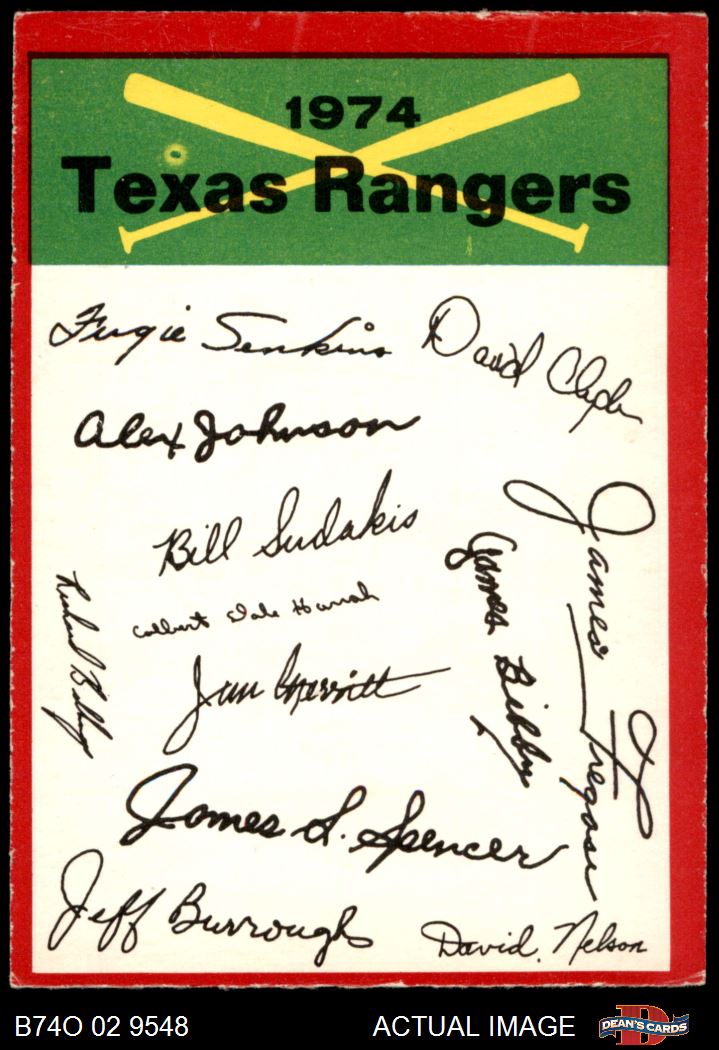 1974
Texas Rangers
Fergie Jenkins
David Clyde
Alex Johnson
Bill Sudakis
James Fregosi
James Bibby
Richard Billings
Colbert Dale Harrah
Jim Merritt
James L. Spencer
Jeff Burroughs
David Nelson
B74O 02 9548
ACTUAL IMAGE
D
DEAN'S CARDS